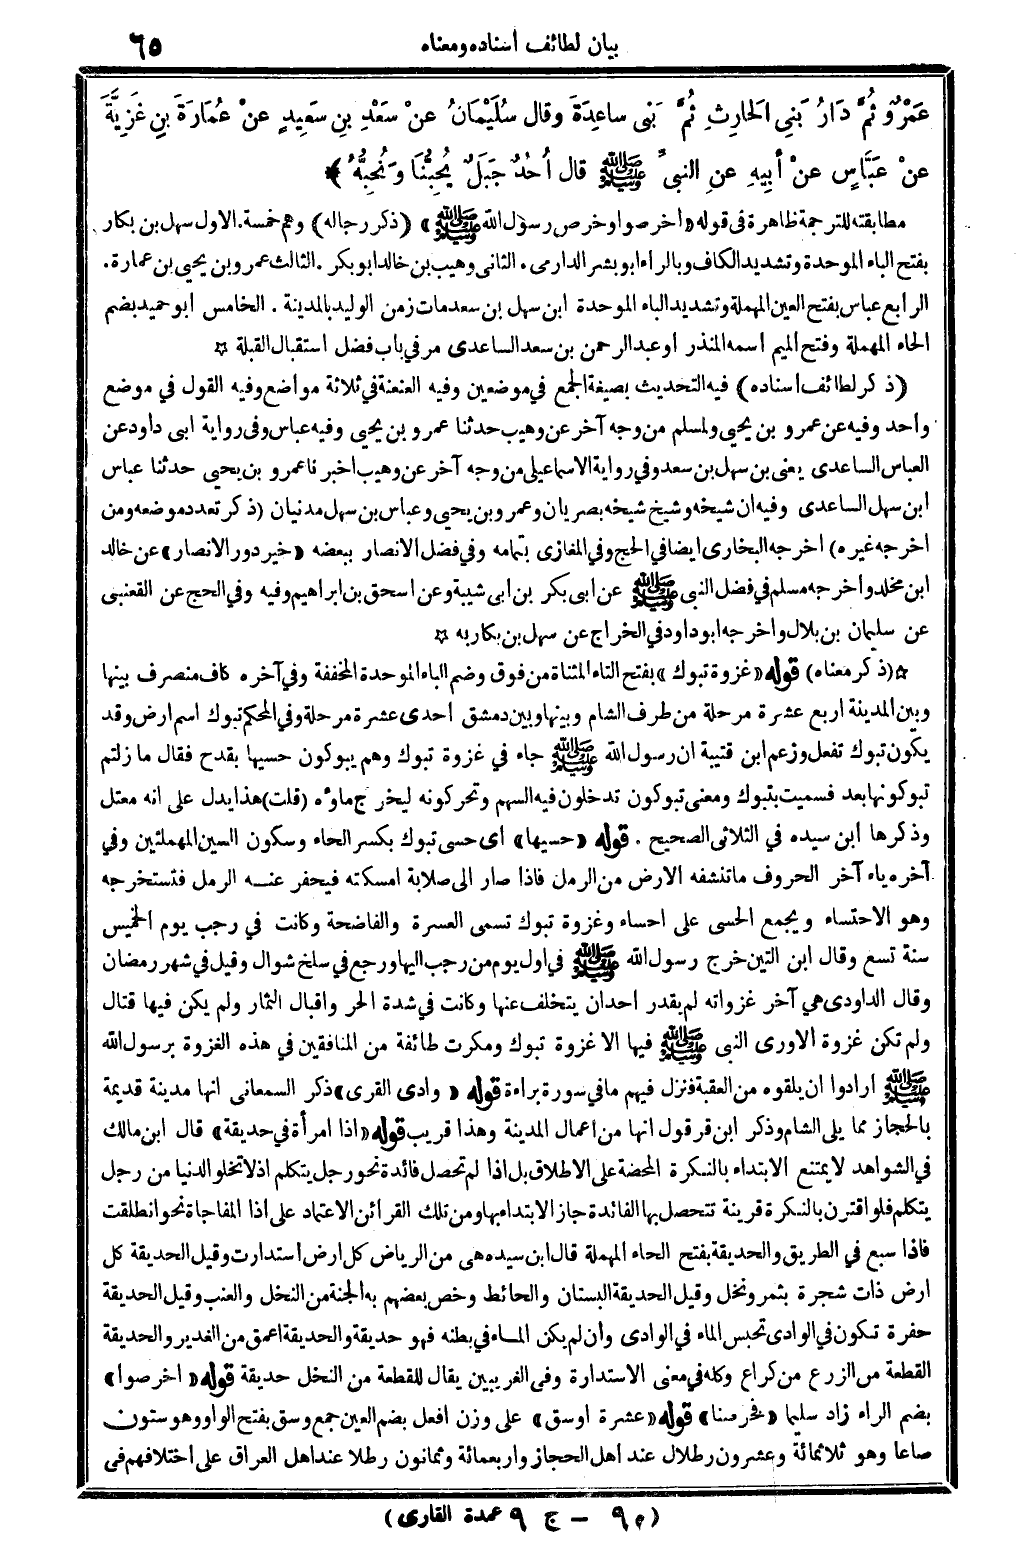 بيان لطائف أسناده ومعناه ٦٥
عَمْرٌو ثُمَّ دَارُ بَنِي الحَارِثِ ثُمَّ بَنِي ساعِدَةَ وقال سُلَيْمَانُ عنْ سَعْدِ بنِ سَعِيدٍ عنْ عُمَارَةَ بنِ غَزِيَّةَ
عنْ عَبَّاسٍ عنْ أبِيهِ عنِ النبيِّ ﷺ قال أُحُدٌ جَبَلٌ يُحِبُّنَا وَنُحِبُّهُ ﴾
مطابقته للترجمة ظاهرة في قوله «أخرصوا وخرص رسول الله ﷺ» (ذكر رجاله) وهم خمسة. الاول سهل بن بكار
بفتح الباء الموحدة وتشديد الكاف وبالراء ابو بشر الدارمي. الثاني وهيب بن خالد ابو بكر. الثالث عمرو بن يحيى بن عمارة.
الرابع عباس بفتح العين المهملة وتشديد الباء الموحدة ابن سهل بن سعد مات زمن الوليد بالمدينة. الخامس ابو حميد بضم
الحاء المهملة وفتح الميم اسمه المنذر أو عبد الرحمن بن سعد الساعدي مر في باب فضل استقبال القبلة ☆
(ذكر لطائف أسناده) فيه التحديث بصيغة الجمع في موضعين وفيه العنعنة في ثلاثة مواضع وفيه القول في موضع
واحد وفيه عن عمرو بن يحيى ولمسلم من وجه آخر عن وهيب حدثنا عمرو بن يحيى وفيه عباس وفي رواية ابى داود عن
العباس الساعدي يعني بن سهل بن سعد وفي رواية الاسماعيلي من وجه آخر عن وهيب اخبرنا عمرو بن يحيى حدثنا عباس
ابن سهل الساعدى وفيه ان شيخه وشيخ شيخه بصريان وعمرو بن يحيى وعباس بن سهل مدنيان (ذكر تعدد موضعه ومن
اخرجه غيره) اخرجه البخاري ايضا في الحج وفي المغازى بتمامه وفي فضل الانصار ببعضه «خير دور الانصار» عن خالد
ابن مخلد واخرجه مسلم في فضل النبي ﷺ عن ابى بكر بن ابى شيبة وعن اسحق بن ابراهيم وفيه وفي الحج عن القعنبي
عن سليمان بن بلال واخرجه ابو داود في الخراج عن سهل بن بكار به ☆
☆(ذكر معناه) قوله «غزوة تبوك» بفتح التاء المثناة من فوق وضم الباء الموحدة المخففة وفي آخره كاف منصرف بينها
وبين المدينة اربع عشرة مرحلة من طرف الشام وبينها وبين دمشق احدى عشرة مرحلة وفي المحكم تبوك اسم ارض وقد
يكون تبوك تفعل وزعم ابن قتيبة ان رسول الله ﷺ جاء في غزوة تبوك وهم يبوكون حسيها بقدح فقال ما زلتم
تبوكونها بعد فسميت بتبوك ومعنى تبوكون تدخلون فيه السهم وتحركونه ليخرج ماؤه (قلت) هذا يدل على انه معتل
وذكرها ابن سيده في الثلاثى الصحيح. قوله «حسيها» اى حسى تبوك بكسر الحاء وسكون السين المهملتين وفي
آخره ياء آخر الحروف ما تنشفه الارض من الرمل فاذا صار الى صلابة امسكته فيحفر عنه الرمل فتستخرجه
وهو الاحتساء ويجمع الحسى على احساء وغزوة تبوك تسمى العسرة والفاضحة وكانت في رجب يوم الخميس
سنة تسع وقال ابن التين خرج رسول الله ﷺ في اول يوم من رجب اليها ورجع في سلخ شوال وقيل في شهر رمضان
وقال الداودى هي آخر غزواته لم يقدر احدان يتخلف عنها وكانت في شدة الحر واقبال الثمار ولم يكن فيها قتال
ولم تكن غزوة الاورى النبي ﷺ فيها الا غزوة تبوك ومكرت طائفة من المنافقين في هذه الغزوة برسول الله
ﷺ ارادوا ان يلقوه من العقبة فنزل فيهم ما في سورة براءة قوله «وادى القرى» ذكر السمعاني انها مدينة قديمة
بالحجاز مما يلي الشام وذكر ابن قرقول انها من اعمال المدينة وهذا قريب قوله «اذا امرأة في حديقة» قال ابن مالك
في الشواهد لا يمتنع الابتداء بالنكرة المحضة على الاطلاق بل اذا لم تحصل فائدة نحو رجل يتكلم اذ لا تخلو الدنيا من رجل
يتكلم فلو اقترن بالنكرة قرينة تتحصل بها الفائدة جاز الابتداء بها ومن تلك القرائن الاعتماد على اذا المفاجاة نحو انطلقت
فاذا سبع في الطريق والحديقة بفتح الحاء المهملة قال ابن سيده هي من الرياض كل ارض استدارت وقيل الحديقة كل
ارض ذات شجرة بثمر ونخل وقيل الحديقة البستان والحائط وخص بعضهم به الجنة من النخل والعنب وقيل الحديقة
حفرة تكون في الوادى تحبس الماء في الوادى وان لم يكن الماء في بطنه فهو حديقة والحديقة اعمق من الغدير والحديقة
القطعة من الزرع من كراع وكله في معنى الاستدارة وفى الغريبين يقال للقطعة من النخل حديقة قوله «اخرصوا»
بضم الراء زاد سليما «فخرصنا» قوله «عشرة اوسق» على وزن افعل بضم العين جمع وسق بفتح الواو وهو ستون
صاعا وهو ثلاثمائة وعشرون رطلال عند اهل الحجاز واربعمائة وثمانون رطلا عند اهل العراق على اختلافهم في
(م ٩ - ج ٩ عمدة القارى)